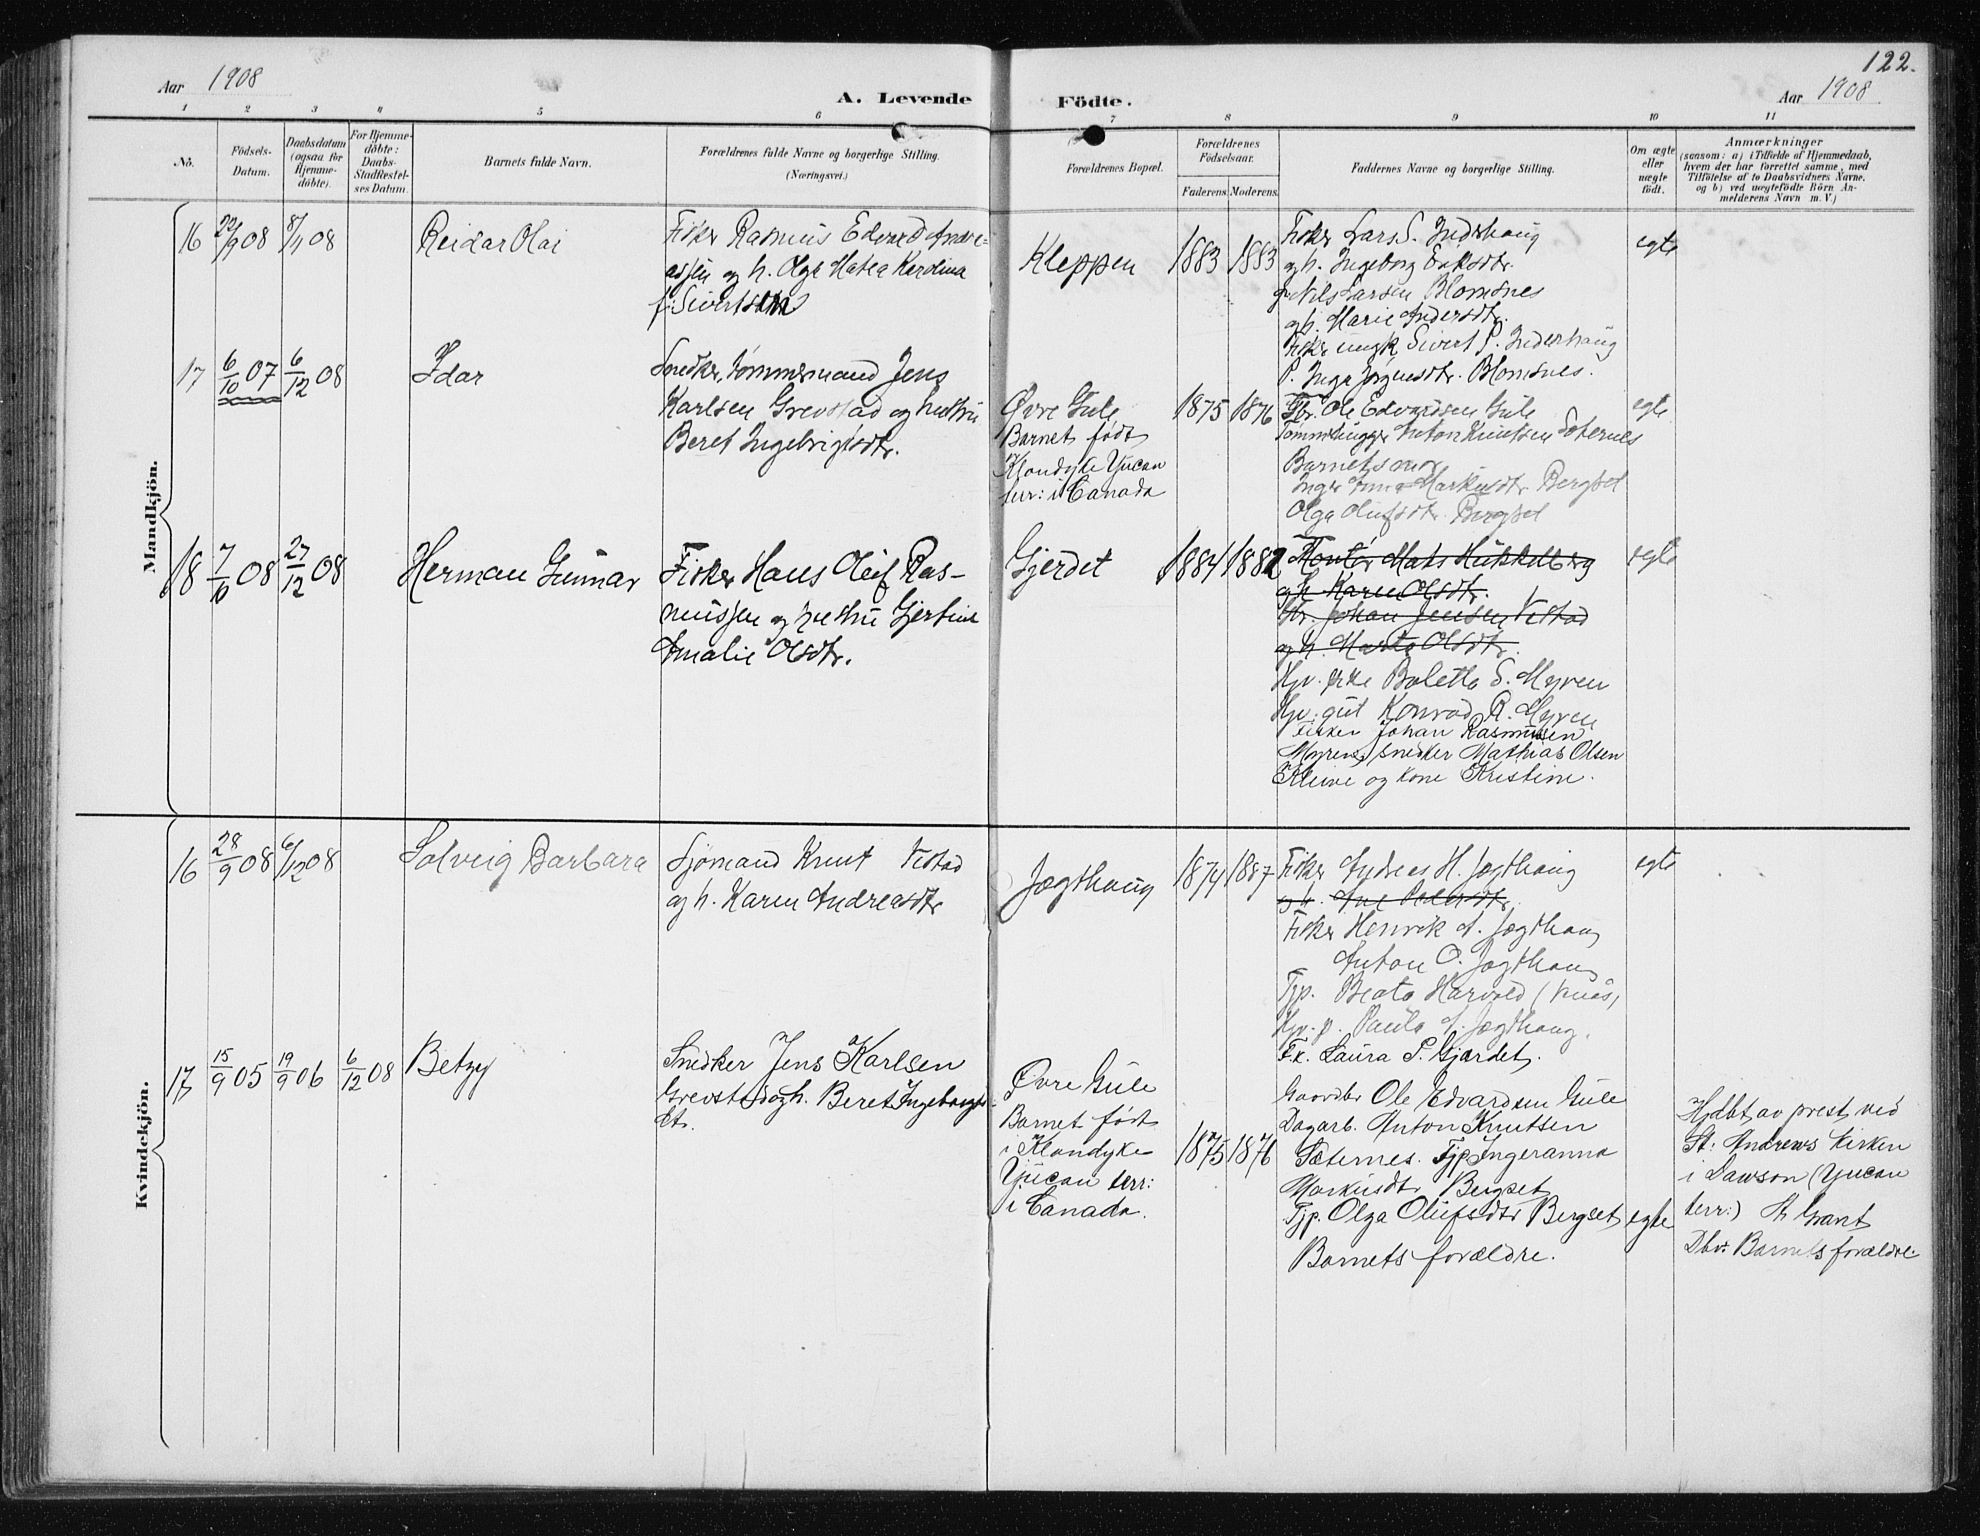 122.
Aar 1908
A. Levende Födte.
Aar 1908
1 2 3 4 5 6 7 8 9 10 11
No.
Födsels-
Datum.
Daabsdatum
(ogsaa for
Hjemme-
döbte).
For Hjemme-
döbte:
Daabs-
Stadfæstel-
ses Datum.
Barnets fulde Navn.
Forældrenes fulde Navne og borgerlige Stilling.
(Næringsvei.)
Forældrenes Bopæl.
Forældrenes
Födselsaar.
Faderens. Moderens.
Faddernes Navne og borgerlige Stilling.
Om ægte
eller
uægte
födt.
Anmærkninger
(saasom: a) i Tilfælde af Hjemmedaab,
hvem der har forrettet samme, med
Tilföielse af to Daabsvidners Navne,
og b) ved uægtefödte Börn An-
melderens Navn m. V.)
Mandkjön.
16 22/9 08 8/11 08 Reidar Olai
Fisker Rasmus Edvard Andre=
assen og h. Olga Matea Karolina
f: Sivertsen
Kleppen 1883 1883
Fisker Lars S. Inderhaug
og h. Ingeborg Eriksdtr.
Nils Larsen Blomsnes
og h. Marie Andersdtr.
Fisker ungk Sivert P. Inderhaug
P. Inga Jørgensdtr. Blomsnes.
egte
17 6/10 07 6/12 08 Idar
Snedker, tømmermand Jens
Karlsen Grevstad og hustru
Beret Ingebrigtsdtr.
Øvre Gule
Barnet født
Klondyke Yucan
terr: i Canada
1875 1876
Gbr. Ole Edvardsen Gule
Tømmerhugger Anton Knutsen Sæternes
Barnets mor
Inger Anna Markusdtr. Bergset
Olga Olufsdtr. Bergset
egte
18 7/10 08 27/12 08 Herman Gunnar
Fisker Hans Oleif Ras-
mussen og hustru Gjertine
Amalie Olsdtr.
Gjerdet 1884 1882
Montør Mats
og h. Karen Olsdtr.
Gbr. Johan Jensen Vestad
og h. Marta Olsdtr.
Hjv. pike Boletta S. Myren
Hjv. gut Konrad R. Myren
Fisker Johan Rasmussen
Myren, snedker Mathias Olsen
Kleive og kone Kristine.
egte
Kvindekjön.
16 28/9 08 6/12 08 Solveig Barbara
Sjømand Knut Vestad
og h. Karen Andreasdtr
Jægthaug 1874 1887
Fisker Andreas H. Jægthaug
og h. Ane Pedersdtr.
Fisker Henrik A. Jægthaug
Anton O. Jægthaug
Tjp. Beata Harvold
Hjv. p. Paula A. Jægthaug.
Fx. Laura P. Gjærdet.
egte
17 15/9 05 19/9 06 6/12 08 Betzy
Snedker Jens Karlsen
Grevstad og h. Beret Ingebrigts
dtr.
Øvre Gule
Barnet født
i Klondyke
Yucan terr:
i Canada.
1875 1876
Gaardbr Ole Edvardsen Gule
Dagarb. Anton Knutsen
Sæternes. Tjp Ingeranna
Markusdtr Bergset
Tjp. Olga Olufsdtr Bergset
Barnets forældre.
egte
Hjdbt av prest ved
St: Andrews kirken
i Dawson (Yucan
terr:) Grant
Dbv: Barnets forældre.